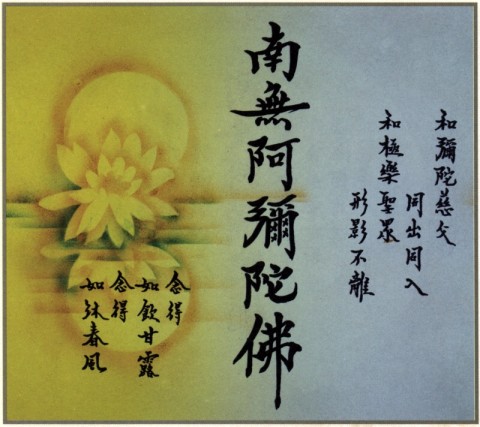 和彌陀慈父
同出同入
和極樂聖眾
形影不離
南無阿彌陀佛
念得
如飲甘露
念得
如沐春風